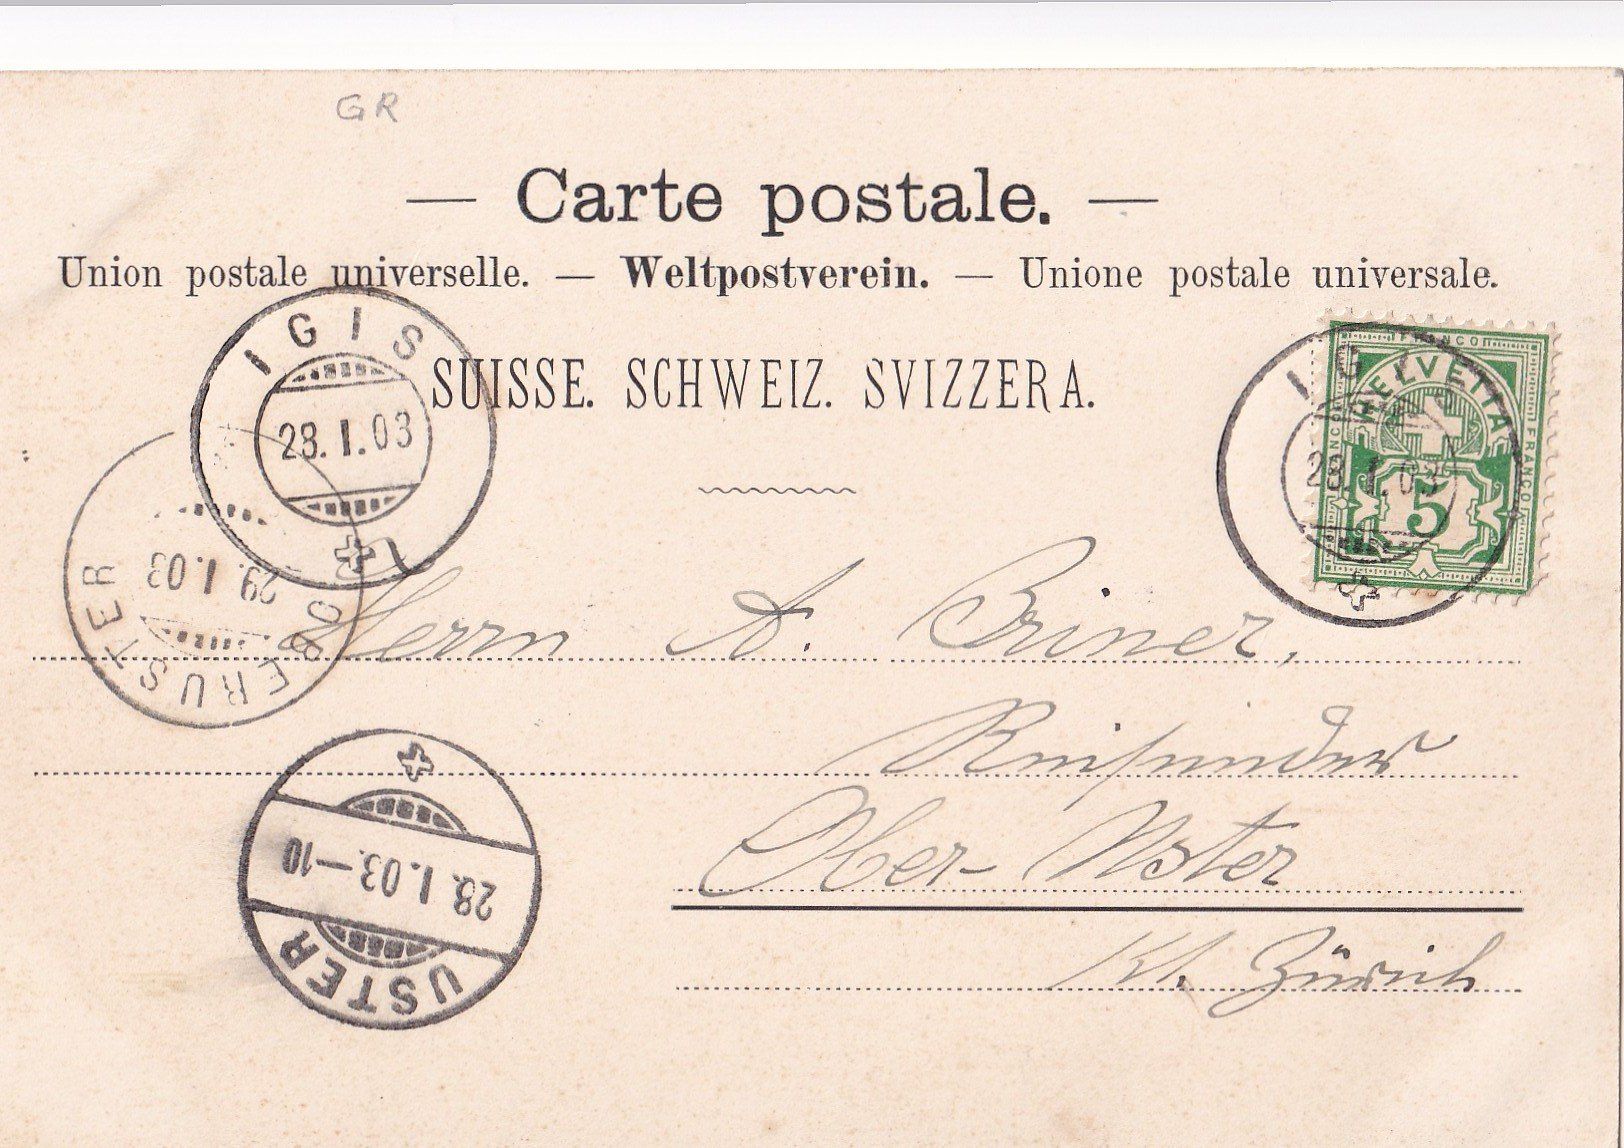 GR
— Carte postale. —
Union postale universelle. — Weltpostverein. — Unione postale universale.
SUISSE. SCHWEIZ. SVIZZERA.
IGIS
28.I.03
IGIS
28.I.03
FRANCO
HELVETIA
FRANCO
FRANCO
5
OBERUSTER
29.I.03
Herrn A. Briner,
Reisender
Ober-Uster
Kt. Zürich
28.I.03.–10
USTER